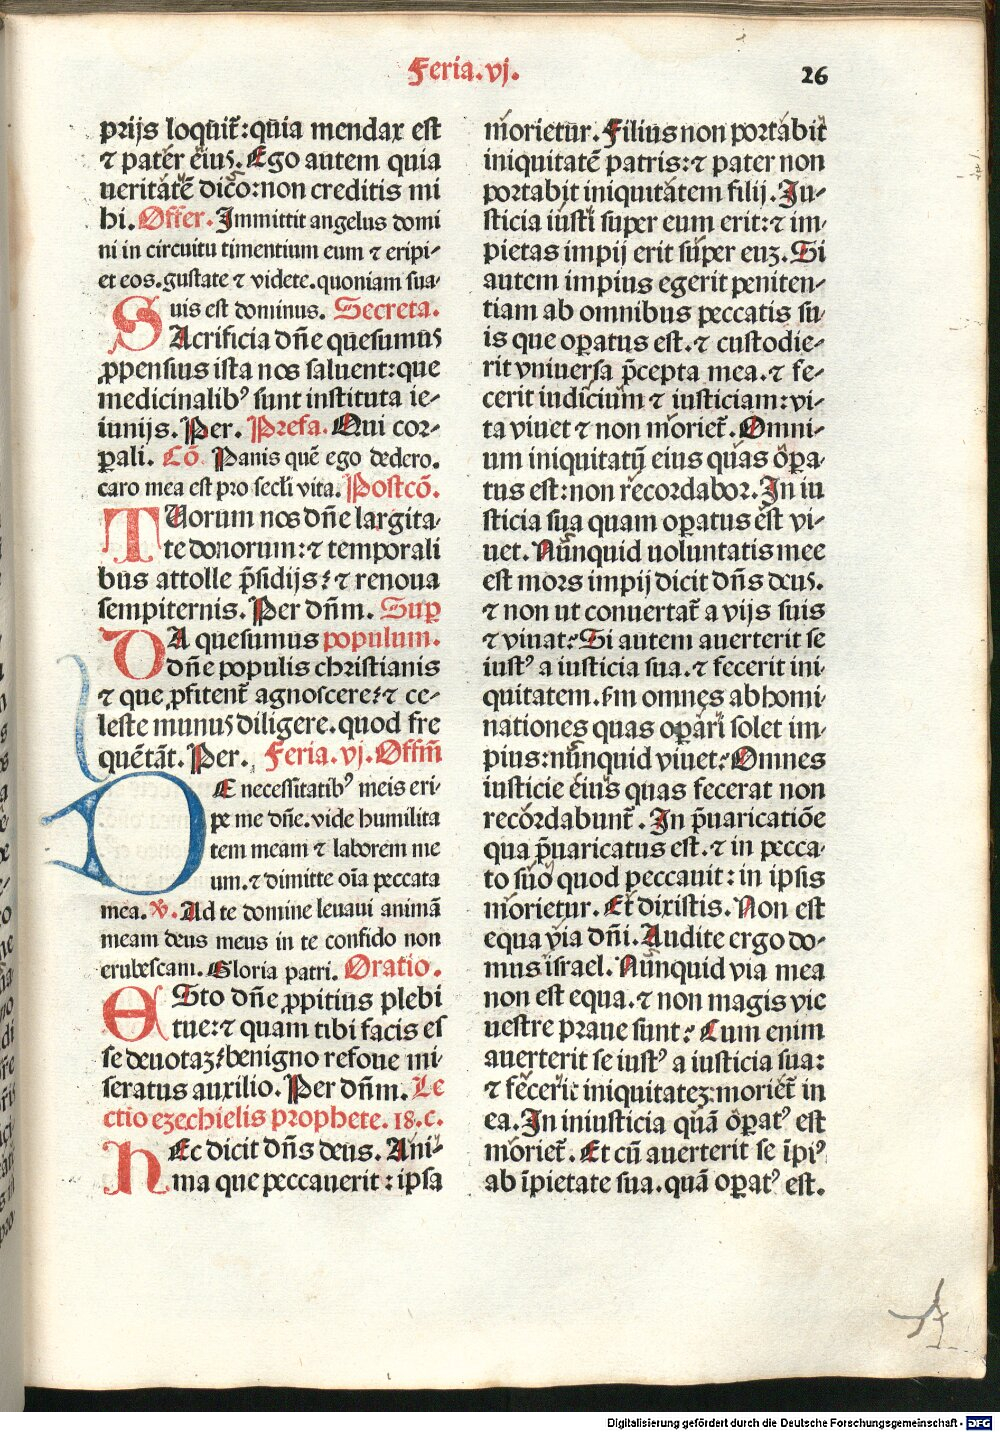 Feria.vj.
26
prijs loquit̃:quia mendax est
⁊ pater eius. Ego autem quia
ueritatē dico:non creditis mi
hi. Offer. Immittit angelus domi
ni in circuitu timentium eum ⁊ eripi-
et eos.gustate ⁊ videte.quoniam sua-
uis est dominus. Secreta.
SAcrificia dn̄e quesumus
ꝓpensius ista nos saluent:que
medicinalibꝰ sunt instituta ie-
iunijs. Per. Prefa. Qui cor-
ꝑali. Cō. Panis quē ego dedero.
caro mea est pro secli vita. Postcō.
TUorum nos dn̄e largita-
te donorum:⁊ temporali
bus attolle p̄sidijs:⁊ renoua
sempiternis. Per dn̄m. Suꝑ
DA quesumus populum.
dn̄e populis christianis
⁊ que ꝓfitent̃ agnoscere:⁊ ce-
leste munus diligere.quod fre
quētāt. Per. Feria.vj. Offm̄
DE necessitatibꝰ meis eri-
pe me dn̄e.vide humilita
tem meam ⁊ laborem me
um.⁊ dimitte oīa peccata
mea. ℣. Ad te domine leuaui animā
meam deus meus in te confido non
erubescam. Gloria patri. Oratio.
ESto dn̄e ꝓpitius plebi
tue:⁊ quam tibi facis es
se deuotaꝫ:benigno refoue mi-
seratus auxilio. Per dn̄m. Le
ctio ezechielis prophete. 18.c.
HEc dicit dn̄s deus. Ani-
ma que peccauerit:ipsa
morietur. Filius non portabit
iniquitatē patris:⁊ pater non
portabit iniquitatem filij. Iu-
sticia iusti super eum erit:⁊ im-
pietas impij erit super euꝫ. Si
autem impius egerit peniten-
tiam ab omnibus peccatis su-
is que oꝑatus est.⁊ custodie-
rit vniuersa p̄cepta mea.⁊ fe-
cerit iudicium ⁊ iusticiam:vi-
ta viuet ⁊ non moriet̃. Omni-
um iniquitatū eius quas oꝑa-
tus est:non recordabor. In iu
sticia sua quam oꝑatus est vi-
uet. Nunquid uoluntatis mee
est mors impij dicit dn̄s deus.
⁊ non ut conuertat̃ a vijs suis
⁊ viuat: Si autem auerterit se
iustꝰ a iusticia sua.⁊ fecerit ini-
quitatem.ẜm omnes abhomi-
nationes quas oꝑari solet im-
pius:nunquid viuet: Omnes
iusticie eius quas fecerat non
recordabunt̃. In p̄uaricatiōe
qua p̄uaricatus est.⁊ in pecca-
to suo quod peccauit:in ipsis
morietur. Et dixistis. Non est
equa via dn̄i. Audite ergo do-
mus israel. Nunquid via mea
non est equa.⁊ non magis vie
uestre praue sunt: Cum enim
auerterit se iustꝰ a iusticia sua:
⁊ fecerit iniquitateꝫ:moriet̃ in
ea. In iniusticia quā oꝑatꝰ est
moriet̃. Et cū auerterit se īpiꝰ
ab īpietate sua.quā oꝑatꝰ est.
Digitalisierung gefördert durch die Deutsche Forschungsgemeinschaft - DFG